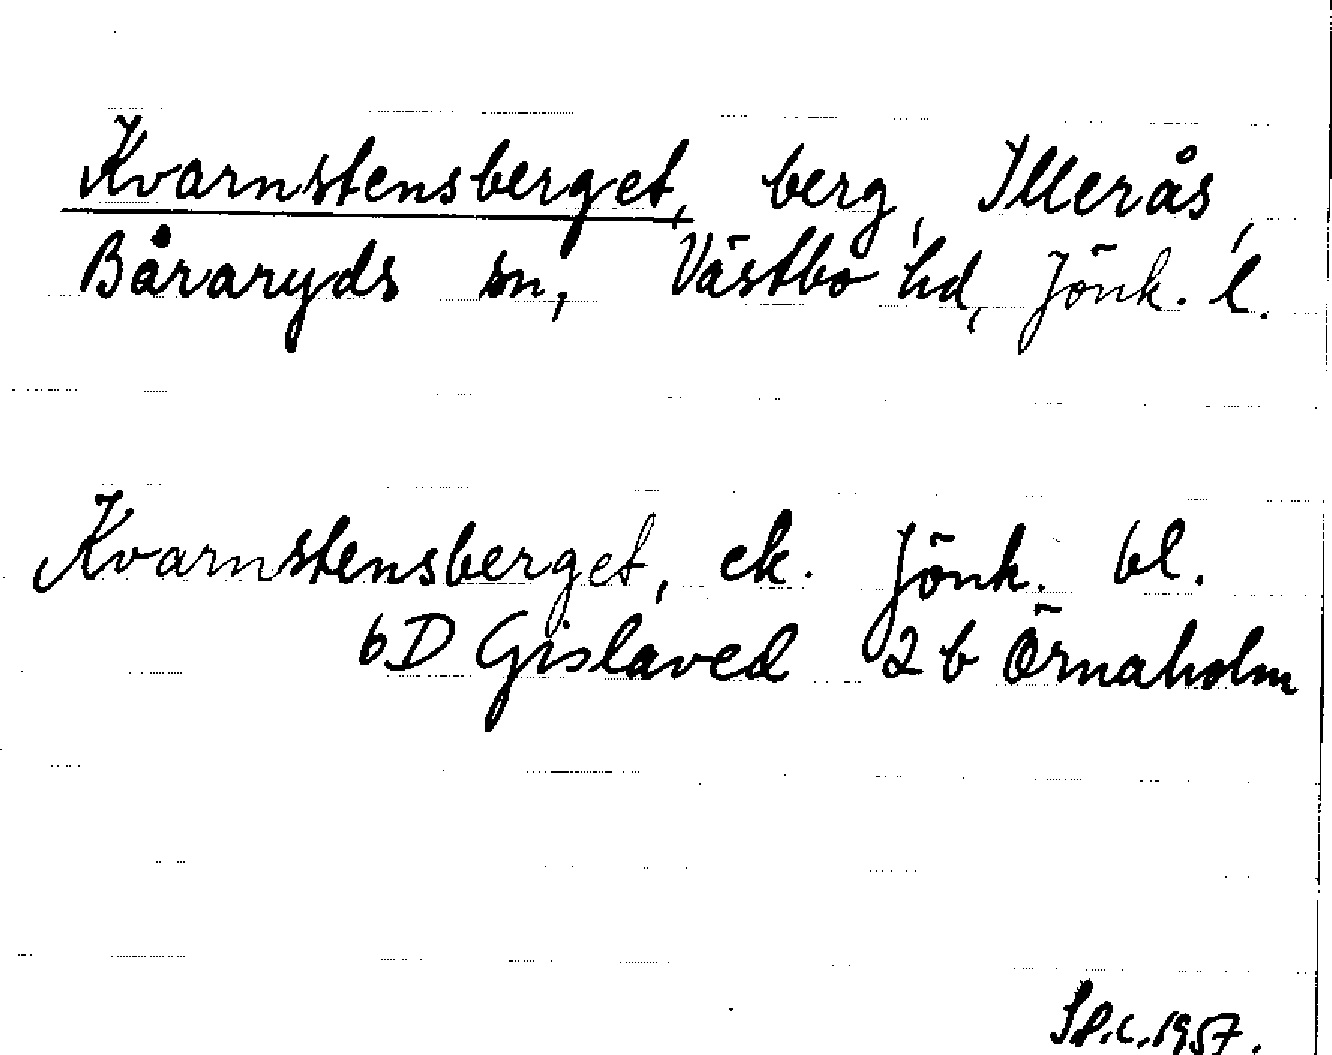 Kvarnstensberget, berg, Illerås,
Båraryds sn, Västbo hd, Jönk. l.
Kvarnstensberget, ek. Jönk. bl.
6D Gislaved 2 b Örnaholm
1957.